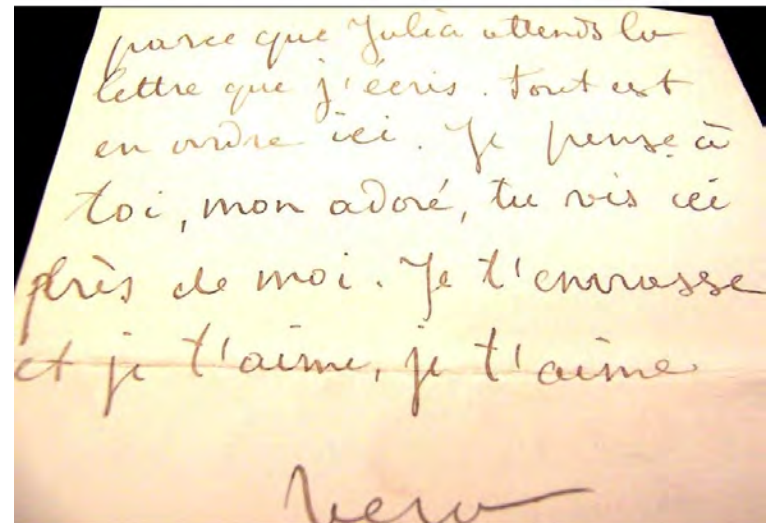 parce que Julia attends la
lettre que j'écris. Tout est
en ordre ici. Je pense à
toi, mon adoré, tu vis ici
près de moi. Je t'embrasse
et je t'aime, je t'aime